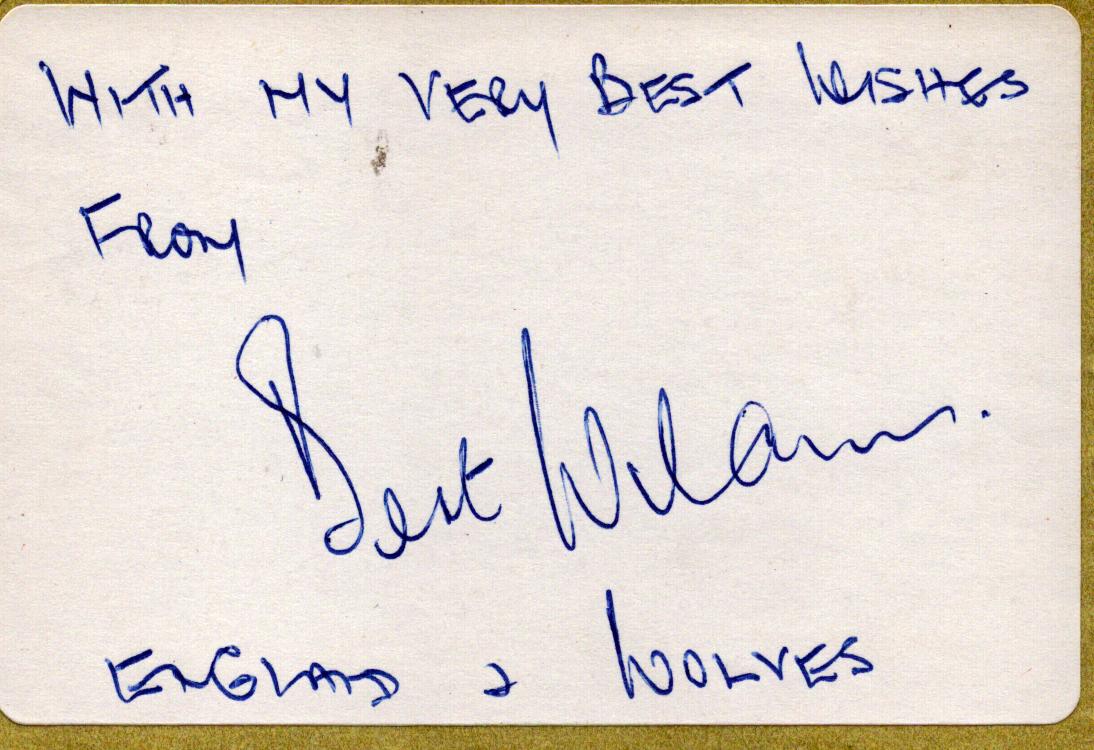 WITH MY VERY BEST WISHES
FROM
Bert Williams.
ENGLAND & WOLVES